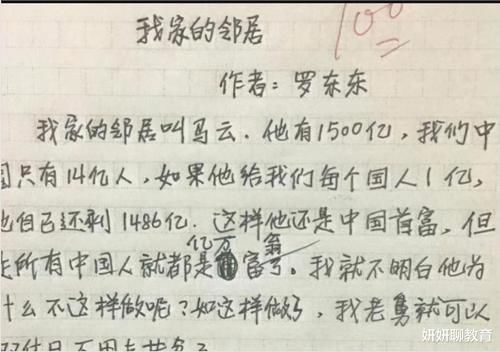 我家的邻居
100
作者：罗东东
我家的邻居叫马云．他有1500亿，我们中
国只有14亿人，如果他给我们每个国人1亿，
他自己还剩1486亿．这样他还是中国首富，但
亿万 翁
所有中国人就都是富了。我就不明白他为
什么不这样做呢？如这样做了，我老舅就可以
妍妍聊教育